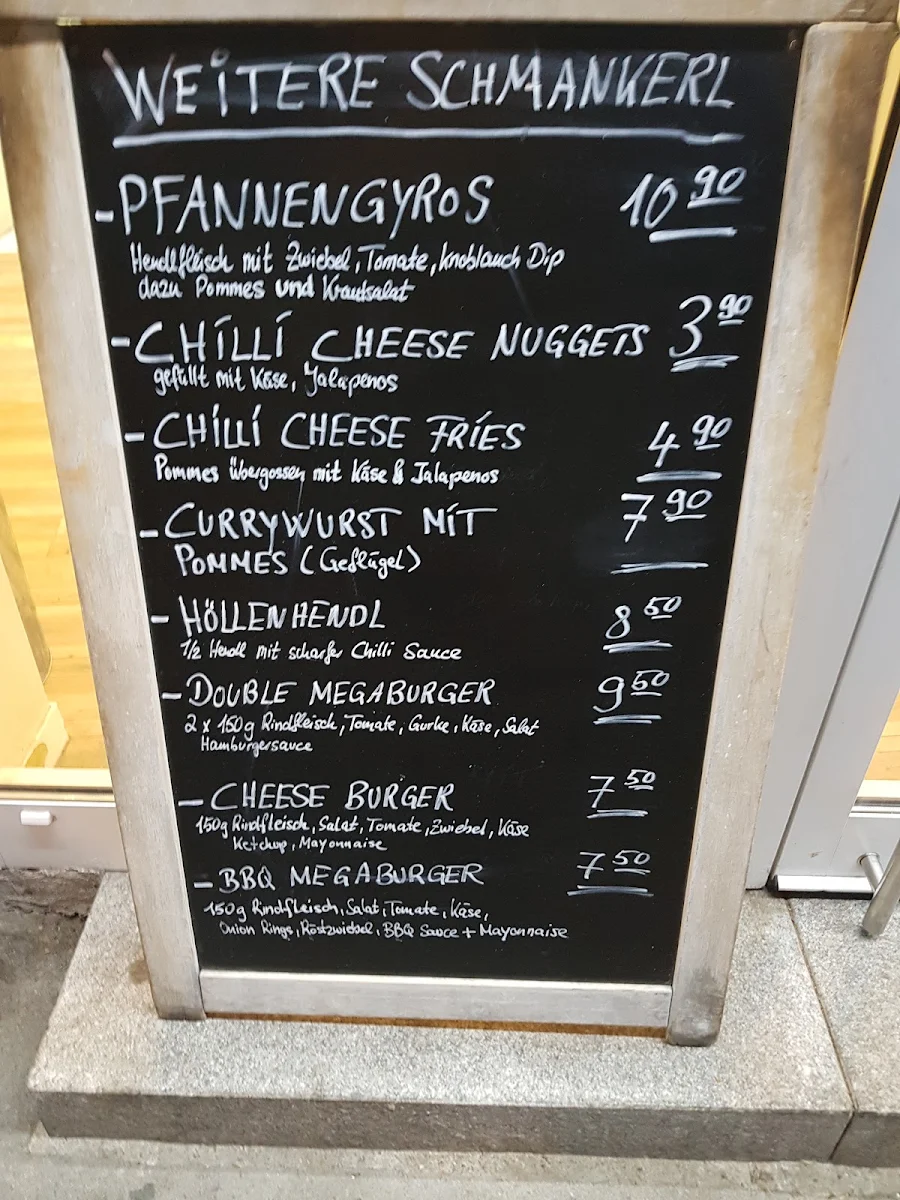 WEITERE SCHMANKERL
- PFANNENGYROS 10 90
Hendlfleisch mit Zwiebel, Tomate, Knoblauch Dip
dazu Pommes und Krautsalat
- CHILLI CHEESE NUGGETS 3 90
gefüllt mit Käse, Jalapenos
- CHILLI CHEESE FRIES 4 90
Pommes übergossen mit Käse & Jalapenos
- CURRYWURST MIT 7 90
POMMES (Geflügel)
- HÖLLENHENDL 8 50
1/2 Hendl mit scharfer Chilli Sauce
- DOUBLE MEGABURGER 9 50
2 x 150g Rindfleisch, Tomate, Gurke, Käse, Salat
Hamburgersauce
- CHEESE BURGER 7 50
150g Rindfleisch, Salat, Tomate, Zwiebel, Käse
Ketchup, Mayonnaise
- BBQ MEGABURGER 7 50
150g Rindfleisch, Salat, Tomate, Käse,
Onion Rings, Röstzwiebel, BBQ Sauce + Mayonnaise